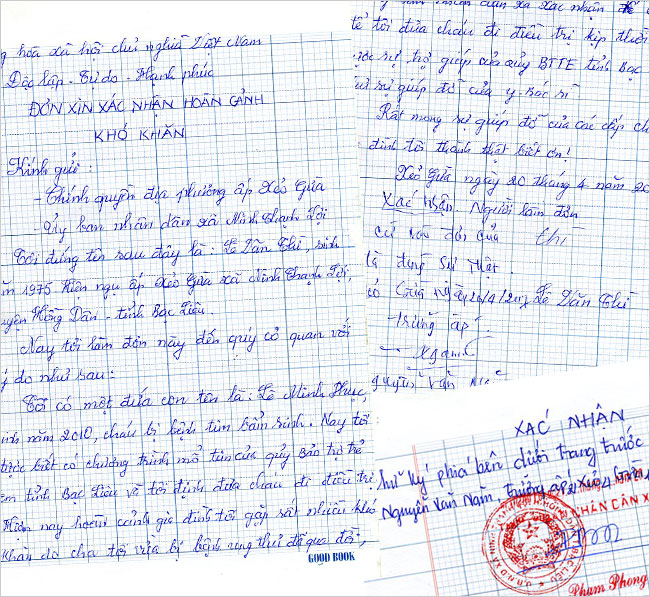 g hoà xã hội chủ nghĩa Việt Nam
Độc lập - Tự do - Hạnh phúc
ĐƠN XIN XÁC NHẬN HOÀN CẢNH
KHÓ KHĂN
Kính gửi :
- Chính quyền địa phương ấp Xẻo Gừa
- Ủy ban nhân dân xã Minh Thạnh Lợi
Tôi đứng tên sau đây là : Lê Văn Thi, sinh
ăm 1975 Hiện ngụ ấp Xẻo Gừa xã Minh Thạnh Lợi,
uyện Hồng Dân - tỉnh Bạc Liêu.
Nay tôi làm đơn này đến quý cơ quan với
ý do như sau :
Tôi có một đứa con tên là : Lê Minh Thực,
inh năm 2010, cháu bị bệnh tim bẩm sinh. Nay tôi
được biết có chương trình mổ tim của quỹ Bảo trợ trẻ
em tỉnh Bạc Liêu và tôi định đưa cháu đi điều trị
Hiện nay hoàn cảnh gia đình tôi gặp rất nhiều khó
khăn do cha tôi vừa bị bệnh ung thư đã qua đời,
GOOD BOOK
xã xác nhận để
tể tôi đưa cháu đi điều trị kịp thời
ược sự hỗ giúp của quỹ BTTE tỉnh Bạc
sự giúp đỡ của y - Bác sĩ
Rất mong sự giúp đỡ của các cấp ch
đình tôi thành thật biết ơn!
Xẻo Gừa ngày 20 tháng 4 năm 20
Xác nhận Người làm đơn
của Thi
là đúng sự thật.
Lê Văn Thi
Trưởng ấp
Nguyễn Văn
XÁC NHẬN
chữ ký phía bên dưới trang trước
Nguyễn Văn Nam, trưởng ấp Xẻo Gừa
NHÂN DÂN X
Phạm Phong